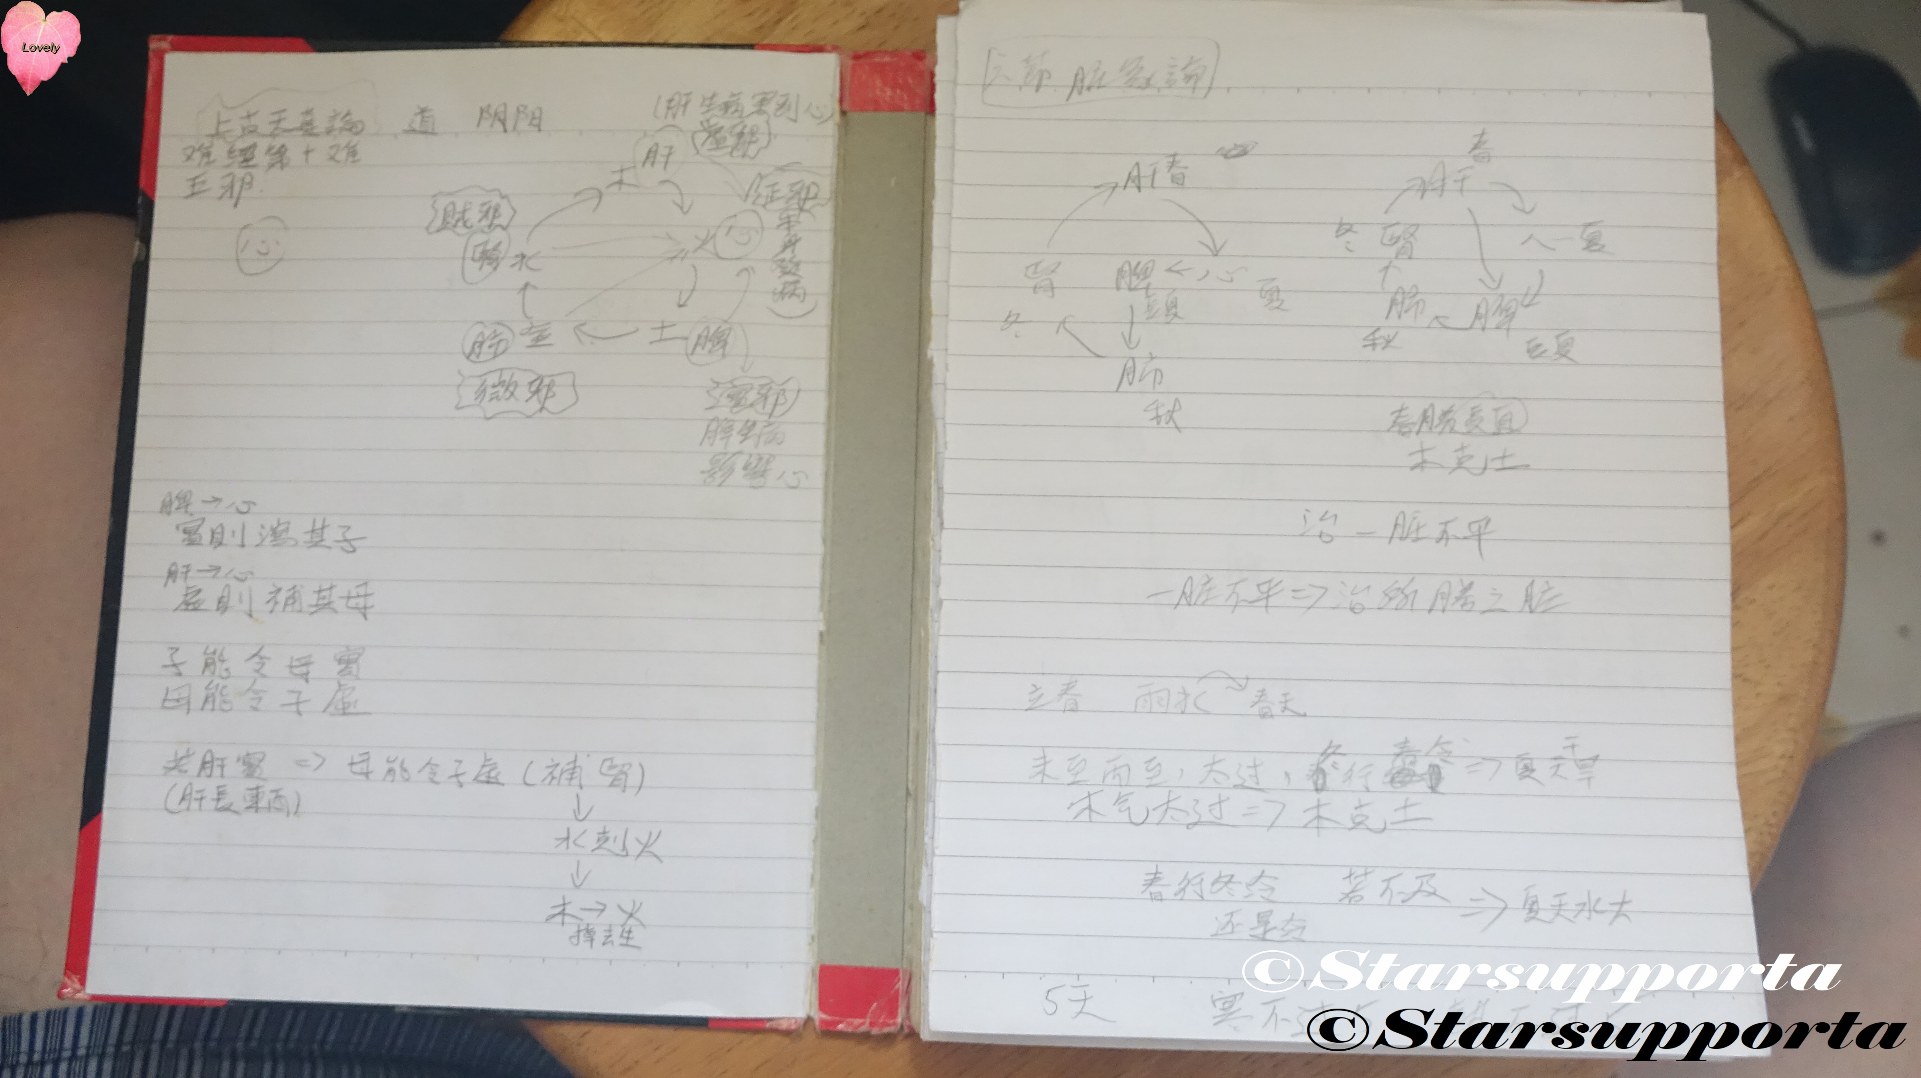 Lovely
上古天真論 道 阴阳 (肝生病害到心)
難經第十难
五邪
肝
木
虛邪
正邪
賊邪
水
火
心
土
脾
肺
金
微邪
實邪
脾生病
影響心
脾→心
實則瀉其子
肝→心
虛則補其母
子能令母實
母能令子虛
若肝實 => 母能令子虛 (補腎)
↓
水剋火
↓
木→火
六節脏象論
肝春
腎
冬
脾 ← 心
夏
肺
秋
春
肝
冬 腎
心 夏
肺 脾
秋
春勝長夏
木克土
治一脏不平
一脏不平=>治所勝之脏
立春 雨水 春天
未至而至,太过,
=> 夏天旱
木气太过=>木克土
春行冬令 若不及 => 夏天水大
还是冷
5天
©Starsupporta
©Starsupporta